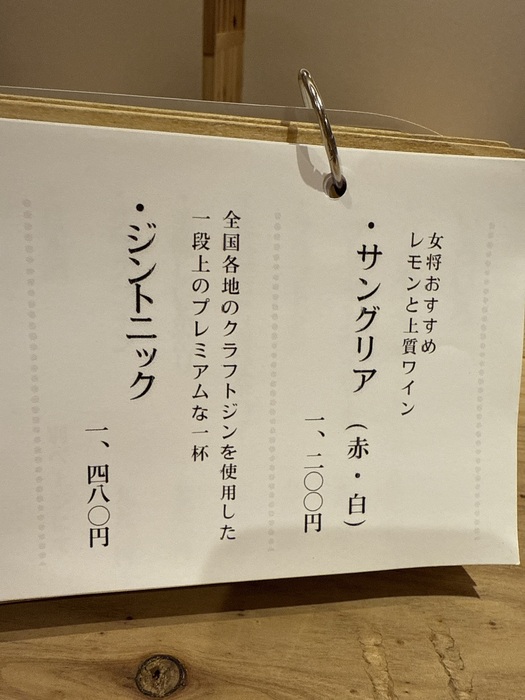 女将おすすめ
レモンと上質ワイン
・サングリア（赤・白）
一、二〇〇円
全国各地のクラフトジンを使用した
一段上のプレミアムな一杯
・ジントニック
一、四八〇円